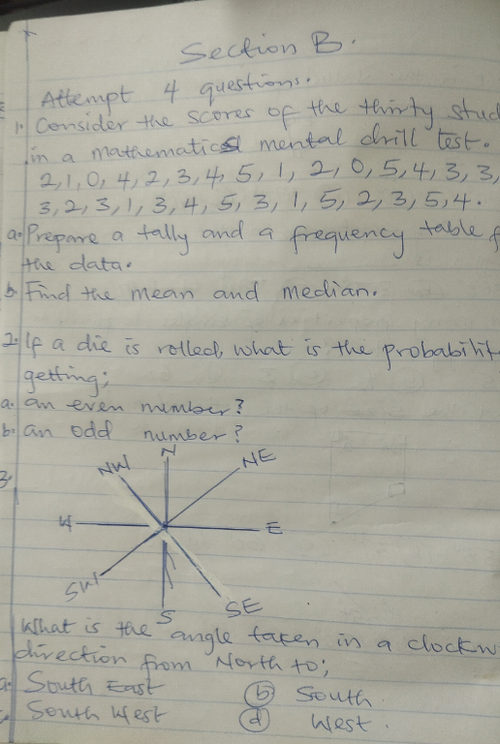 Section B.
Attempt 4 questions.
1. Consider the scores of the thirty stud
in a mathematics mental drill test.
2, 1, 0, 4, 2, 3, 4, 5, 1, 2, 0, 5, 4, 3, 3,
3, 2, 3, 1, 3, 4, 5, 3, 1, 5, 2, 3, 5, 4.
a. Prepare a tally and a frequency table f
the data.
b. Find the mean and median.
2. If a die is rolled, what is the probabilit
getting;
a. an even number?
b. an odd number?
3.
N
NW NE
W E
SW SE
S
What is the angle taken in a clockw
direction from North to;
a. South East (b) South.
c. South West (d) West.